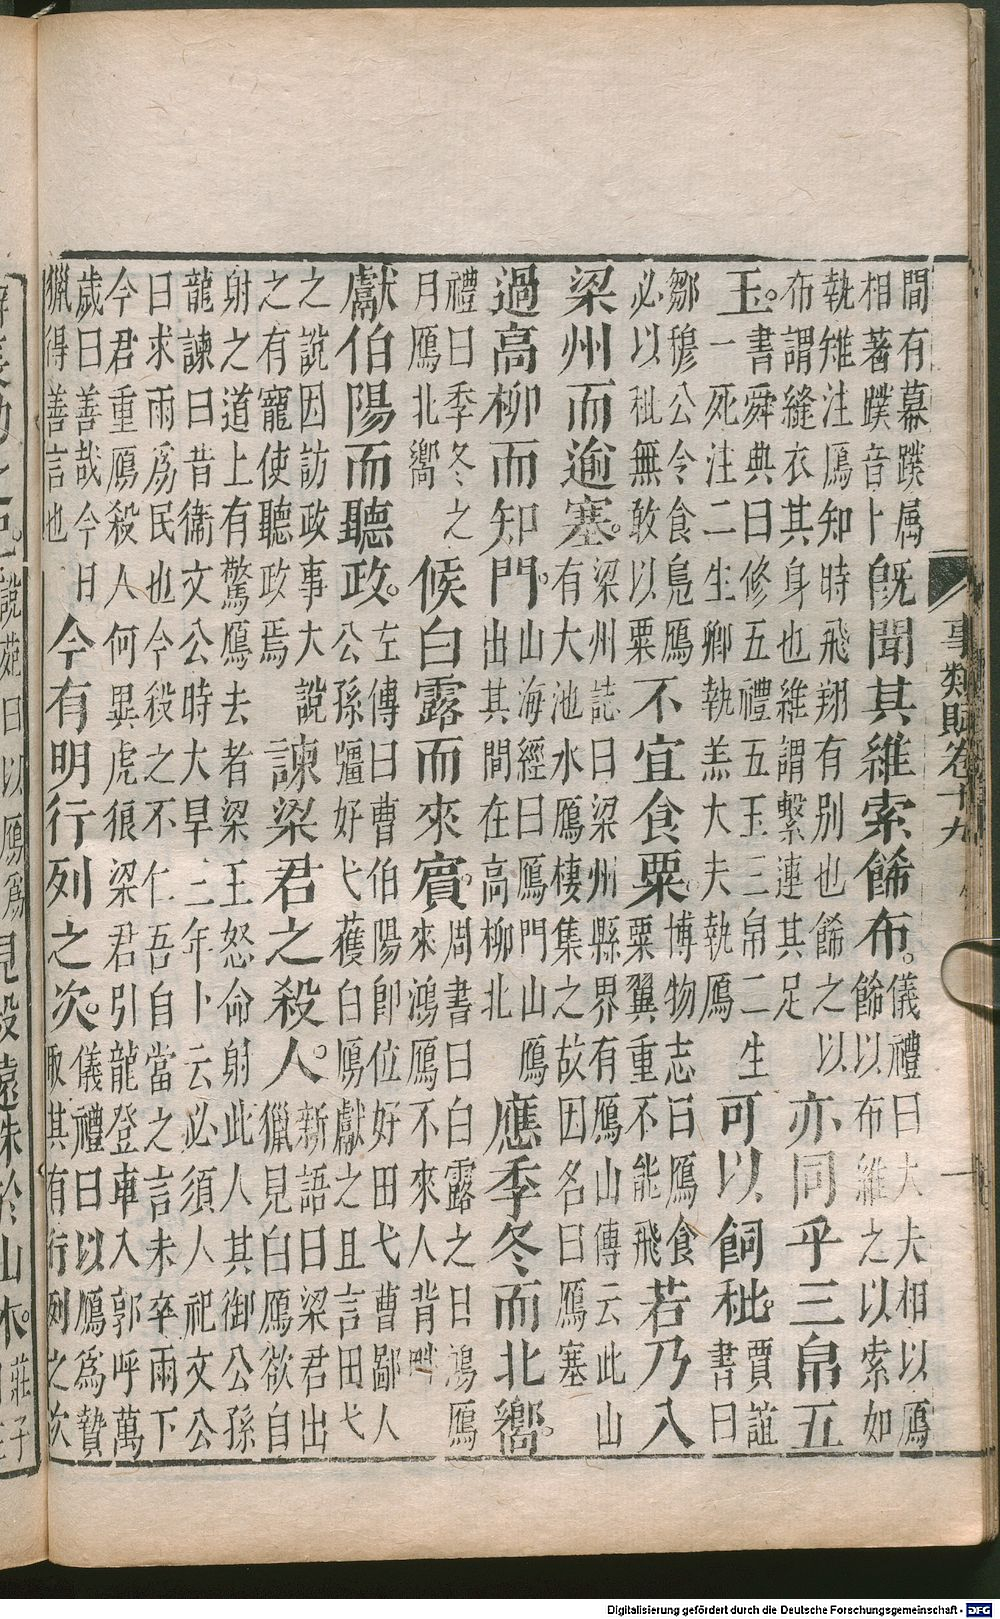 事類賦卷十九
間有幕蹼属
相著蹼音卜
旣聞其維索餙布。
儀禮曰大夫相以鴈
餙以布維之以索如
執雉注鴈知時飛翔有别也餙之以
布謂縫衣其身也維謂繫連其足
亦同乎三帛五
玉。
書舜典曰修五禮五玉三帛二生
一死注二生卿執羔大夫執鴈
可以飼秕。
賈誼
書曰
鄒穆公令食鳧鴈
必以秕無敢以粟
不宜食粟。
博物志曰鴈食
粟翼重不能飛
若乃入
梁州而逾塞。
梁州誌曰梁州縣界有鴈山傳云此山
有大池水鴈棲集之故因名曰鴈塞
過高柳而知門。
山海經曰鴈門山鴈
出其間在高柳北
應季冬而北嚮。
禮曰季冬之
月鴈北嚮
候白露而來賓。
周書曰白露之日鴻鴈
來鴻鴈不來人背畔
獻伯陽而聽政。
左傳曰曹伯陽卽位好田弋曹鄙人
公孫彊好弋獲白鴈獻之且言田弋
之說因訪政事大說
之有寵使聽政焉
諫梁君之殺人。
新語曰梁君出
獵見白鴈欲自
射之道上有驚鴈去者梁王怒命射此人其御公孫
龍諫曰昔衞文公時大旱三年卜云必須人祀文公
曰求雨爲民也今殺之不仁吾自當之言未卒雨下
今君重鴈殺人何異虎狼梁君引龍登車入郭呼萬
歲曰善哉今日
獵得善言也
今有明行列之次。
儀禮曰以鴈爲贄
取其有行列之次
說苑曰以鴈爲
山木。
莊子
Digitalisierung gefördert durch die Deutsche Forschungsgemeinschaft - DFG